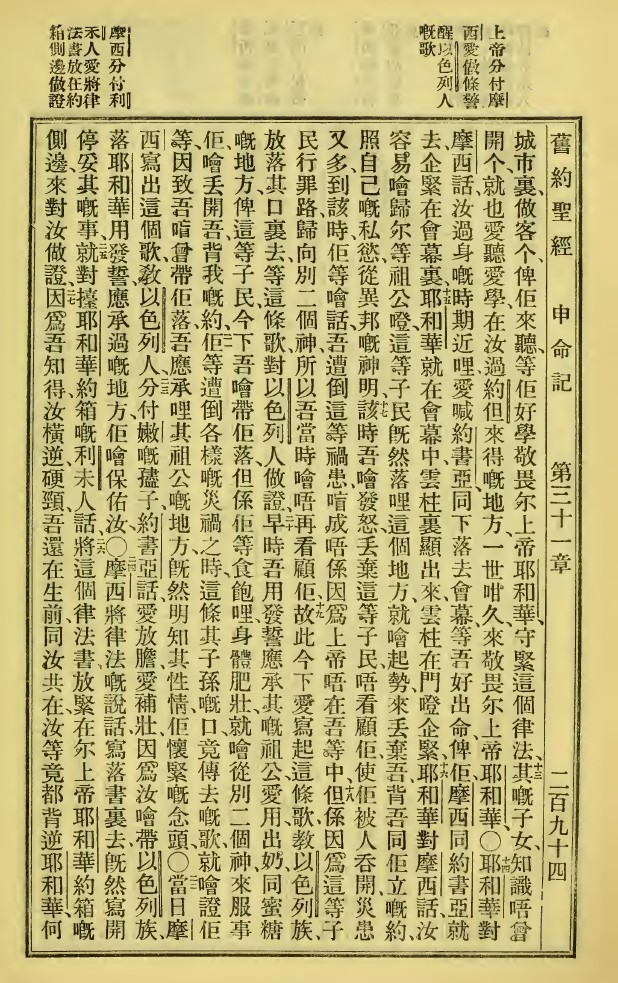 上帝分付摩
西愛做條警
醒以色列人
嘅歌
摩西分付利
未人愛將律
法書放在約
箱側邊做證
舊約聖經 申命記 第三十一章 二百九十四
城市裏、做客个、俾佢來聽、等佢好學敬畏尔上帝耶和華、守緊這個律法、十三其嘅子女、知識唔曾
開个、就也愛聽、愛學、在汝過約但來得嘅地方、一世咁久、來敬畏尔上帝耶和華、〇十四耶和華對
摩西話、汝過身嘅時期近哩、愛喊約書亞、同下落去會幕、等吾好出命俾佢、摩西同約書亞、就
去企緊在會幕裏、十五耶和華就在會幕中、雲柱裏顯出來、雲柱在門嶝企緊、十六耶和華對摩西話、汝
容易噲歸尔等祖公嶝、這等子民既然落哩這個地方、就噲起勢來丟棄吾、背吾同佢立嘅約、
照自己嘅私慾、從異邦嘅神明、十七該時吾噲發怒丟棄這等子民、唔看顧佢、使佢被人吞開、災患
又多、到該時佢等噲話、吾遭倒這等禍患、唷成唔係因爲上帝唔在吾等中、十八但係因爲這等子
民行罪路、歸向別二個神、所以吾當時噲唔再看顧佢、十九故此今下愛寫起這條歌、教以色列族、
放落其口裏去、等這條歌、對以色列人做證、二十早時吾用發誓應承其嘅祖公、愛用出奶同蜜糖
嘅地方俾這等子民、今下吾噲帶佢落、但係佢等食飽哩、身體肥壯、就噲從別二個神來服事
佢、噲丟開吾、背我嘅約、二一佢等遭倒各樣嘅災禍之時、這條其子孫嘅口竟傳去嘅歌、就噲證佢
等、因致吾唷曾帶佢落吾應承哩其祖公嘅地方、既然明知其性情、佢懷緊嘅念頭、〇二二當日摩
西寫出這個歌、教以色列人、二三分付嫩嘅孻子約書亞話、愛放膽、愛補壯、因爲汝噲帶以色列族、
落耶和華用發誓應承過嘅地方、佢噲保佑汝、〇二四摩西將律法嘅說話、寫落書裏去、既然寫開
停妥其嘅事、二五就對擡耶和華約箱嘅利未人話、二六將這個律法書、放緊在尔上帝耶和華約箱嘅
側邊、來對汝做證、二七因爲吾知得汝橫逆硬頸、吾還在生前、同汝共在、汝等竟都背逆耶和華、何